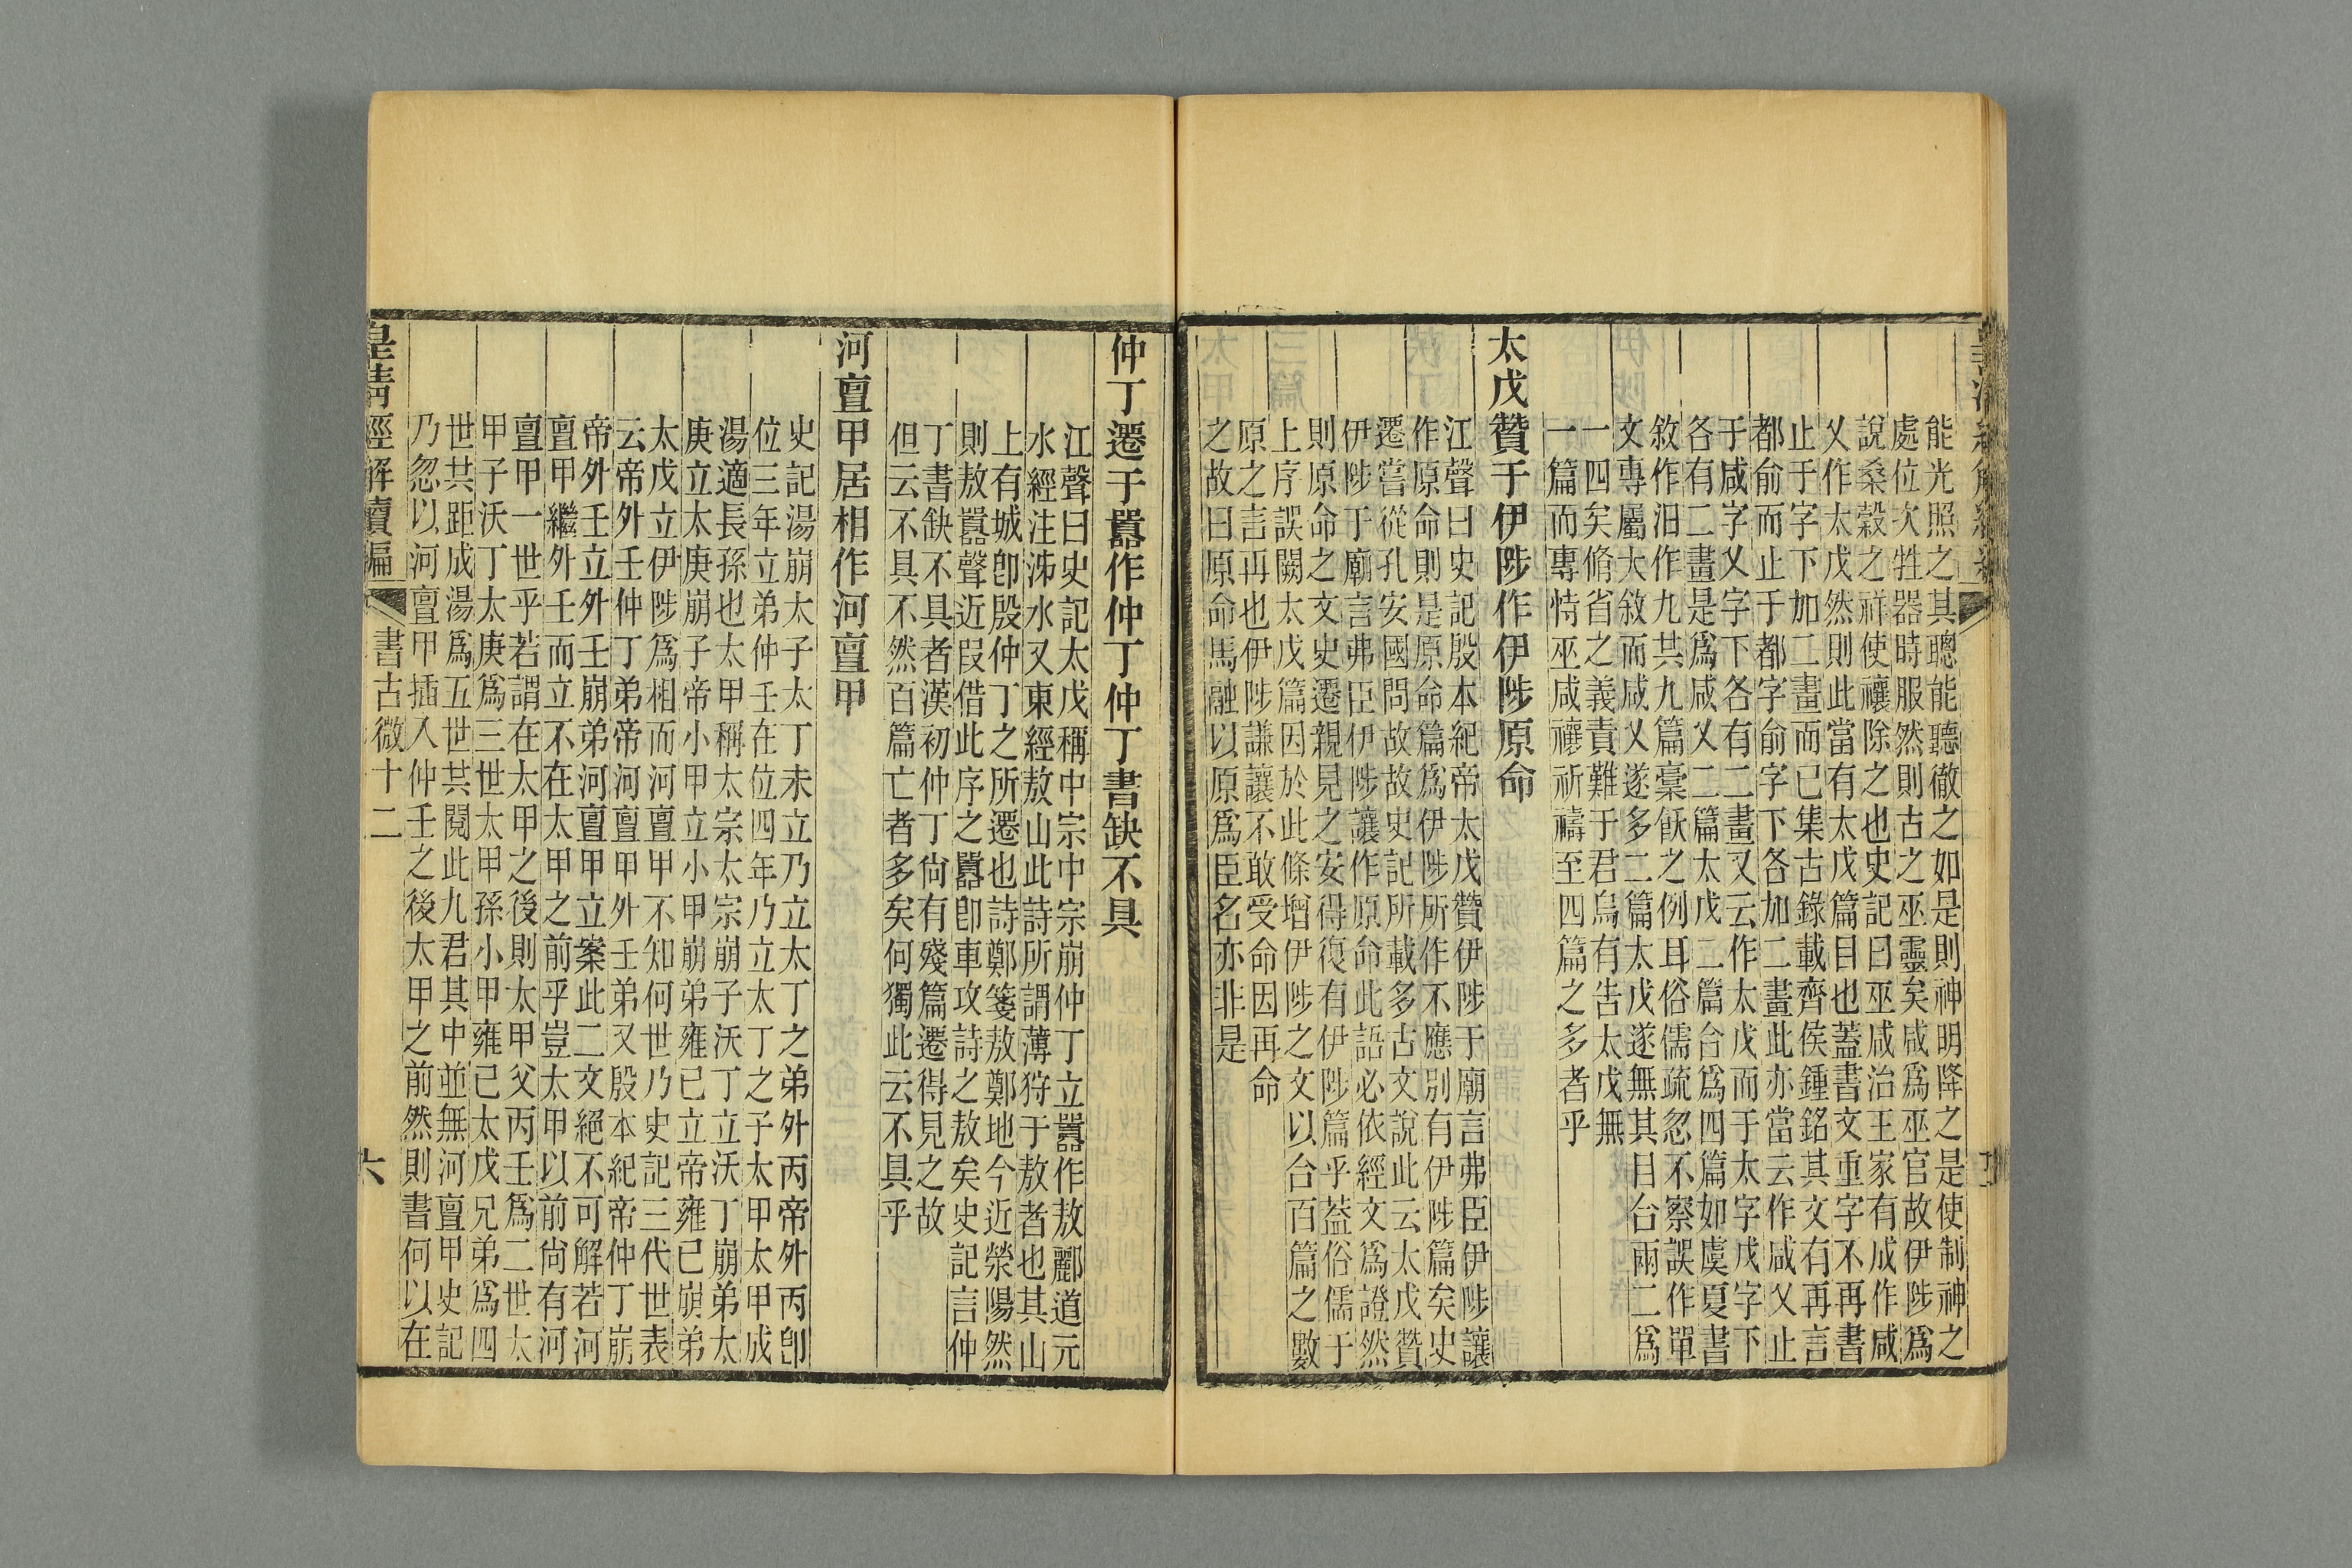 能光照之其聰能聽徹之如是則神明降之是使制神之
處位次牲器時服然則古之巫靈矣咸爲巫官故伊陟爲
說桑榖之祥使禳除之也史記曰巫咸治王家有成作咸
乂作太戊然則此當有太戊篇目也蓋書文重字不再書
止于字下加二畫而已集古錄載齊侯鍾銘其文有再言
都俞而止于都字俞字下各加二畫此亦當云作咸乂止
于咸字又字下各有二畫又云作太戊而于太字戊字下
各有二畫是爲咸乂二篇太戊二篇台爲四篇如虞夏書
敘作汨作九共九篇稾飫之例耳俗儒疏忽不察誤作單
文專屬大敘而咸乂遂多二篇太戊遂無其目台兩二爲
一四矣脩省之義責難于君烏有吿太戊無
一篇而專恃巫咸禳祈禱至四篇之多者乎
太戊贊于伊陟作伊陟原命
江聲曰史記殷本紀帝太戊贊伊陟于廟言弗臣伊陟讓
作原命則是原命篇爲伊陟所作不應別有伊陟篇矣史
遷嘗從孔安國問故故史記所載多古文說此云太戊贊
伊陟于廟言弗臣伊陟讓作原命此語必依經文爲證然
則原命之文史遷親見之安得復有伊陟篇乎蓋俗儒于
上序誤闕太戊篇因於此條增伊陟之文以台百篇之數
原之言再也伊陟謙讓不敢受命因再命
之故曰原命馬融以原爲臣名亦非是
仲丁遷于囂作仲丁仲丁書缺不具
江聲曰史記太戊稱中宗中宗崩仲丁立囂作敖酈道元
水經注泲水又東經敖山此詩所謂薄狩于敖者也其山
上有城卽殷仲丁之所遷也詩鄭箋敖鄭地今近滎陽然
則敖囂聲近叚借此序之囂卽車攻詩之敖矣史記言仲
丁書缺不具者漢初仲丁尙有殘篇遷得見之故
但云不具不然百篇亡者多矣何獨此云不具乎
河亶甲居相作河亶甲
史記湯崩太子太丁未立乃立太丁之弟外丙帝外丙卽
位三年立弟仲壬在位四年乃立太丁之子太甲太甲成
湯適長孫也太甲稱太宗太宗崩子沃丁立沃丁崩弟太
庚立太庚崩子帝小甲立小甲崩弟雍已立帝雍已崩弟
太戊立伊陟爲相而河亶甲不知何世乃史記三代世表
云帝外壬仲丁弟帝河亶甲外壬弟又殷本紀帝仲丁崩
帝外壬立外壬崩弟河亶甲立案此二文絕不可解若河
亶甲繼外壬而立不在太甲之前乎豈太甲以前尙有河
亶甲一世乎若謂在太甲之後則太甲父丙壬爲二世太
甲子沃丁太庚爲三世太甲孫小甲雍己太戊兄弟爲四
世共距成湯爲五世共閱此九君其中並無河亶甲史記
乃忽以河亶甲插入仲壬之後太甲之前然則書何以在
皇清經解續編
書古微十二
六